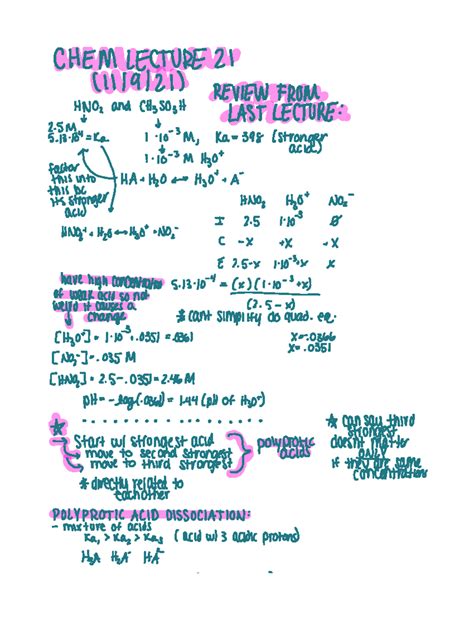 CHEM LECTURE 21
(11/9/21)
REVIEW FROM
LAST LECTURE:
HNO₂ and CH₃SO₃H
2.5 M
5.13·10⁻⁴ = Ka
1·10⁻³ M, Ka = 398 (stronger
acid)
1·10⁻³ M H₃O⁺
factor
this into
this bc
its stronger
acid
HA + H₂O ↔ H₃O⁺ + A⁻
HNO₂ + H₂O ↔ H₃O⁺ + NO₂⁻
HNO₂ H₃O⁺ NO₂⁻
I 2.5 1·10⁻³ Ø
C -x +x +x
E 2.5-x 1·10⁻³+x x
have high concentration
of weak acid so not
weird it causes a
change
5.13·10⁻⁴ = (x)(1·10⁻³+x)
(2.5-x)
* cant simplify do quad. eq.
x=-.0366
x=.0351
[H₃O⁺] = 1·10⁻³ + .0351 = .0361
[NO₂⁻] = .035 M
[HNO₂] = 2.5 - .0351 = 2.46 M
pH = -log(.0361) = 1.44 (pH of H₃O⁺)
* Start w/ strongest acid
move to second strongest
move to third strongest
polyprotic
acids
* directly related to
eachother
* can say third
strongest
doesnt matter
ONLY
if they are same
concentrations
POLYPROTIC ACID DISSOCIATION:
- mixture of acids
Ka₁ > Ka₂ > Ka₃ (acid w/ 3 acidic protons)
H₃A H₂A⁻ HA⁻